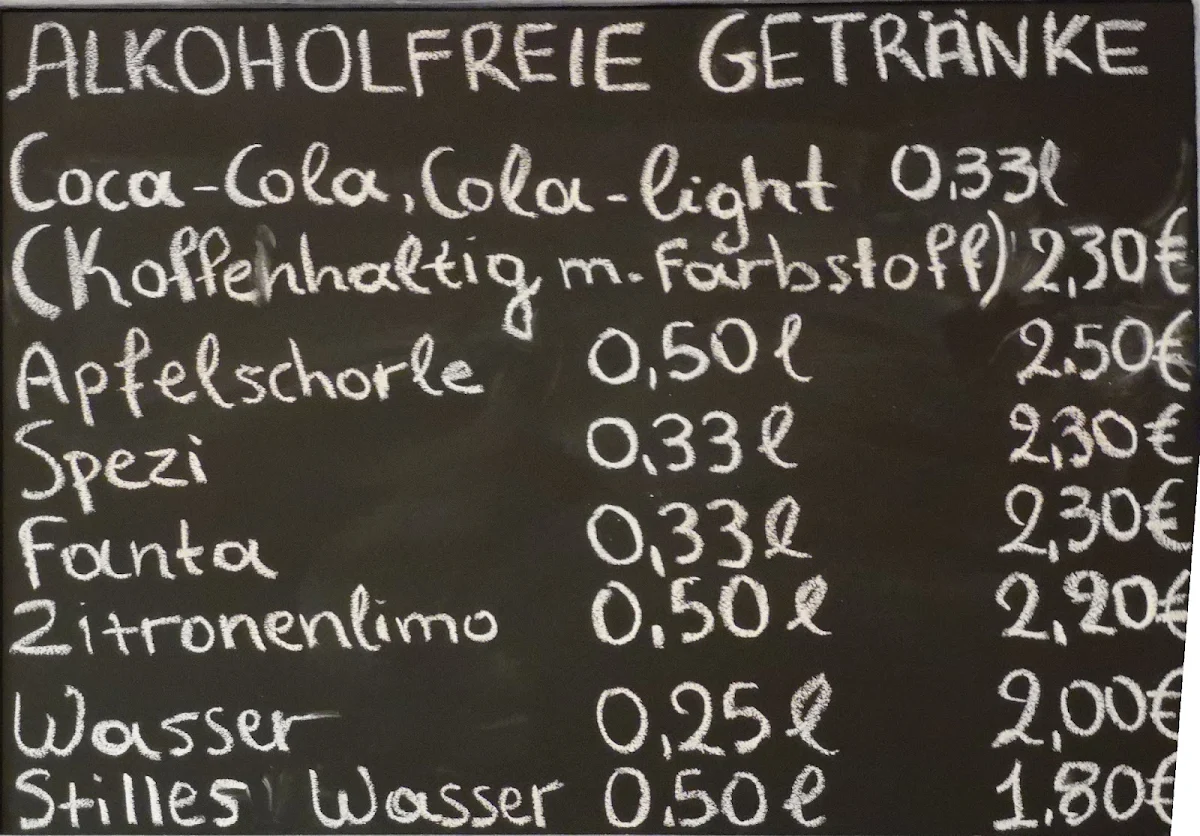 ALKOHOLFREIE GETRÄNKE
Coca-Cola, Cola-light 0,33l
(Koffenhaltig m. Farbstoff) 2,30€
Apfelschorle 0,50l 2.50€
Spezi 0,33l 2,30€
Fanta 0,33l 2,30€
Zitronenlimo 0,50l 2,20€
Wasser 0,25l 2,00€
Stilles Wasser 0.50l 1,80€